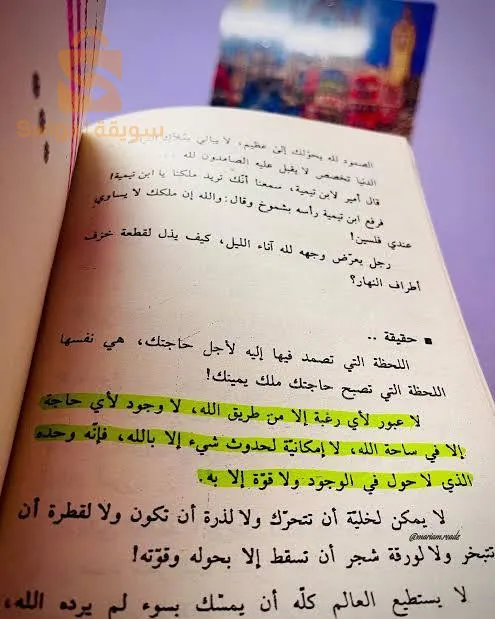 سويقة
الصمود لله يحولك إلى عظيم، لا يبالي
الدنيا تخصص لا يقبل عليه الصامدون لله
قال أمير لابن تيمية، سمعنا أنّك تريد ملكنا يا ابن تيمية!
فرفع ابن تيمية رأسه بشموخ وقال: والله إن ملكك لا يساوي
عندي فلسين!
رجل يعرّض وجهه لله آناء الليل، كيف يذل لقطعة خزف
أطراف النهار؟
▪ حقيقة ..
اللحظة التي تصمد فيها إليه لأجل حاجتك، هي نفسها
اللحظة التي تصبح حاجتك ملك يمينك!
لا عبور لأي رغبة إلا من طريق الله، لا وجود لأي حاجة
إلا في ساحة الله، لا إمكانيّة لحدوث شيء إلا بالله، فإنّه وحده
الذي لا حول في الوجود ولا قوّة إلا به.
لا يمكن لخليّة أن تتحرّك ولا لذرة أن تكون ولا لقطرة أن
@mariam.reads
تتبخر ولا لورقة شجر أن تسقط إلا بحوله وقوّته!
لا يستطيع العالم كلّه أن يمسّك بسوء لم يرده الله،